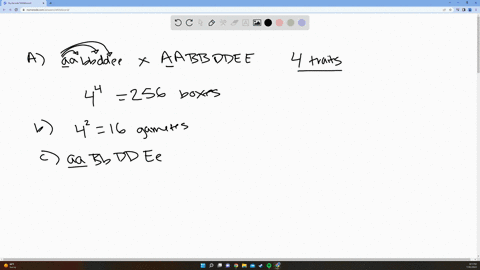 A) aabbddee x AABBDDEE 4 traits
4⁴ = 256 boxes
b) 4² = 16 gametes
c) aaBbDDEe